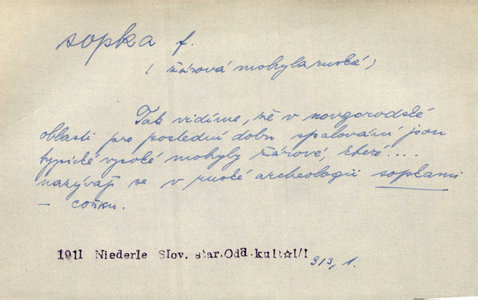 sopka f.
( žárová mohyla ruská )
Tak vidíme, že v novgorodské
oblasti pro poslední dobu spalování jsou
typické vysoké mohyly žárové, které ....
nazývají se v ruské archeologii sopkami
– сопки.
1911 Niederle Slov. star. Odd. kult I/1
313, 1.